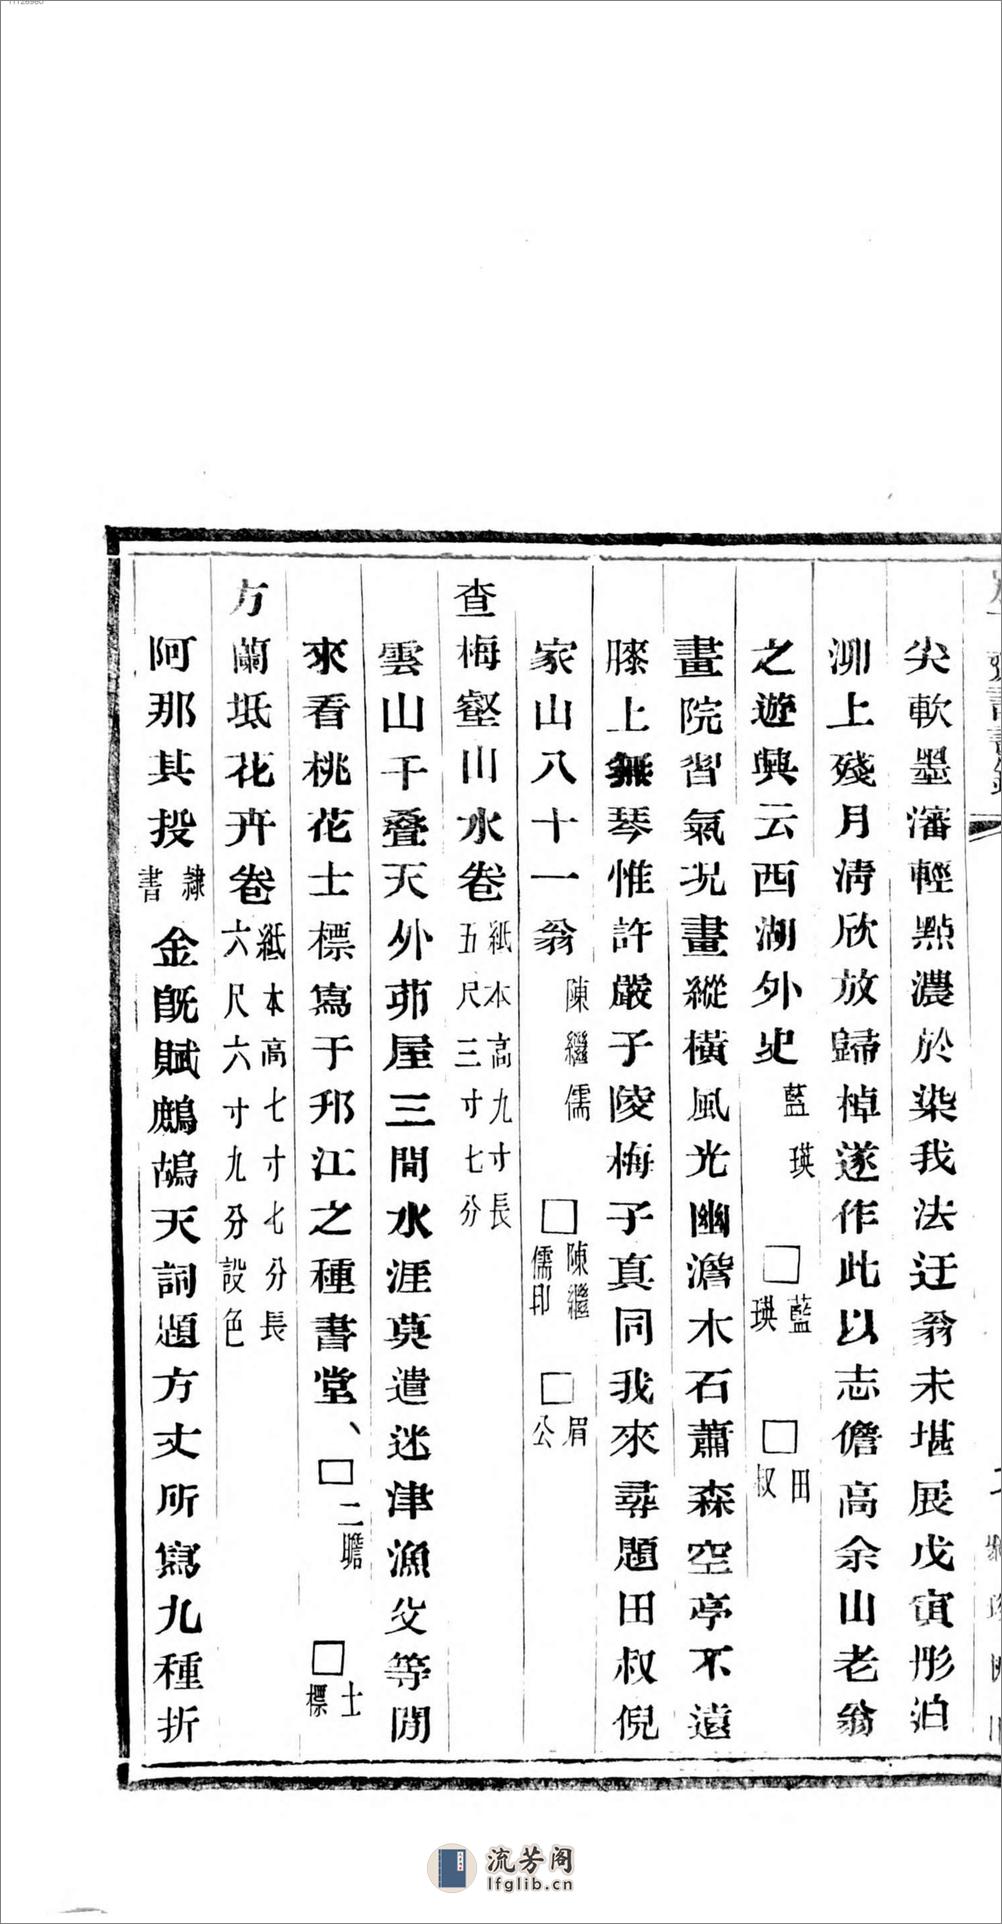 尖軟墨瀋輕點濃於染我法迂翁未堪展戊寅彤泊
泖上殘月清欣放歸棹遂作此以志儋高余山老翁
之遊興云西湖外史藍瑛□藍瑛□田叔
畫院習氣況畫縱橫風光幽澹木石蕭森空亭不遠
膝上無琴惟許嚴子陵梅子真同我來尋題田叔倪
家山八十一翁陳繼儒□陳繼儒印□眉公
查梅壑山水卷紙本高九寸長五尺三寸七分
雲山千叠天外茆屋三間水涯莫遣迷津漁父等閒
來看桃花士標寫于邗江之種書堂、□二瞻□士標
方蘭坻花卉卷紙本高七寸七分長六尺六寸九分設色
阿那其投隸書金旣賦鷓鴣天詞題方丈所寫九種折
流芳阁
lfglib.cn